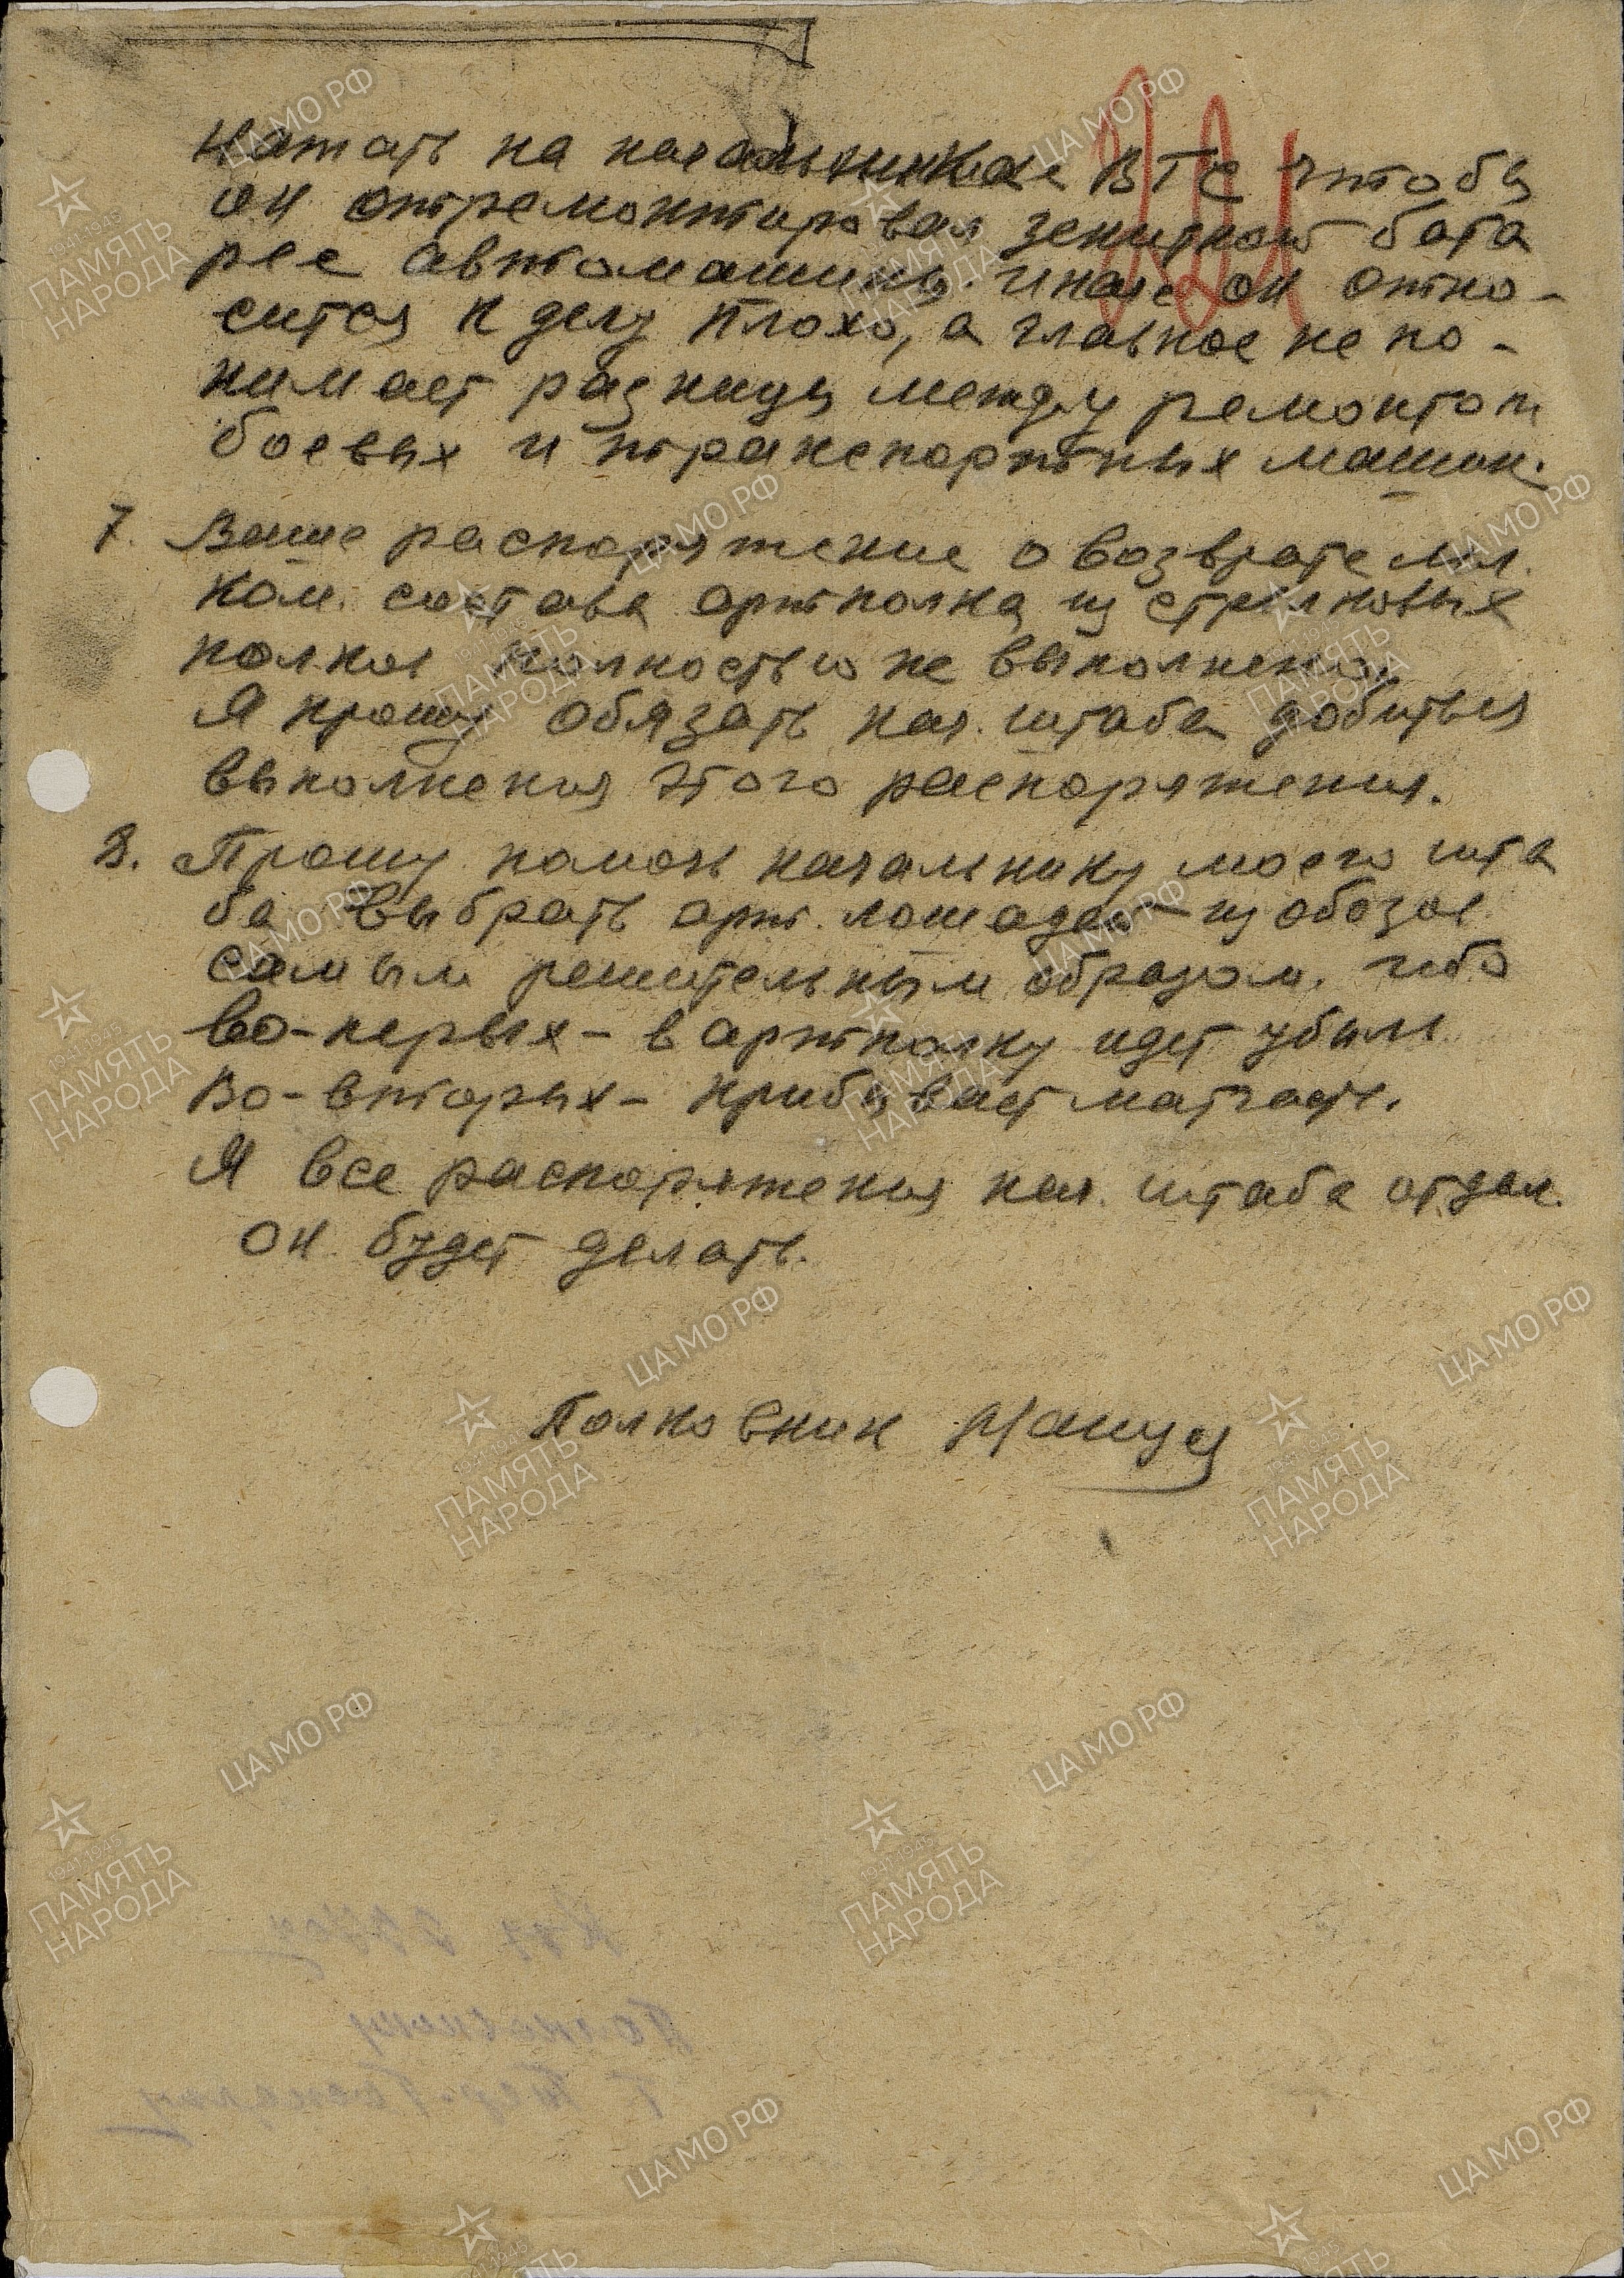 нажать на начальника ВТС чтобы
он отремонтировал зенитной бата
рее автомашины. Иначе он отно-
сится к делу плохо, а главное не по-
нимает разницы между ремонтом
боевых и транспортных машин.
7. Ваше распоряжение о возврате мл.
ком. состава артполка из стрелковых
полков полностью не выполнено.
Я прошу обязать нач. штаба добиться
выполнения этого распоряжения.
8. Прошу помочь начальнику моего шта
ба выбрать арт. лошадей из обозов
самым решительным образом. ибо
во-первых - в артполку идет убыль
Во-вторых - прибывает матчасть.
Я все распоряжения нач. штаба отдал.
он будет делать.
Полковник
ЦАМО РФ
1941-1945
ПАМЯТЬ
НАРОДА